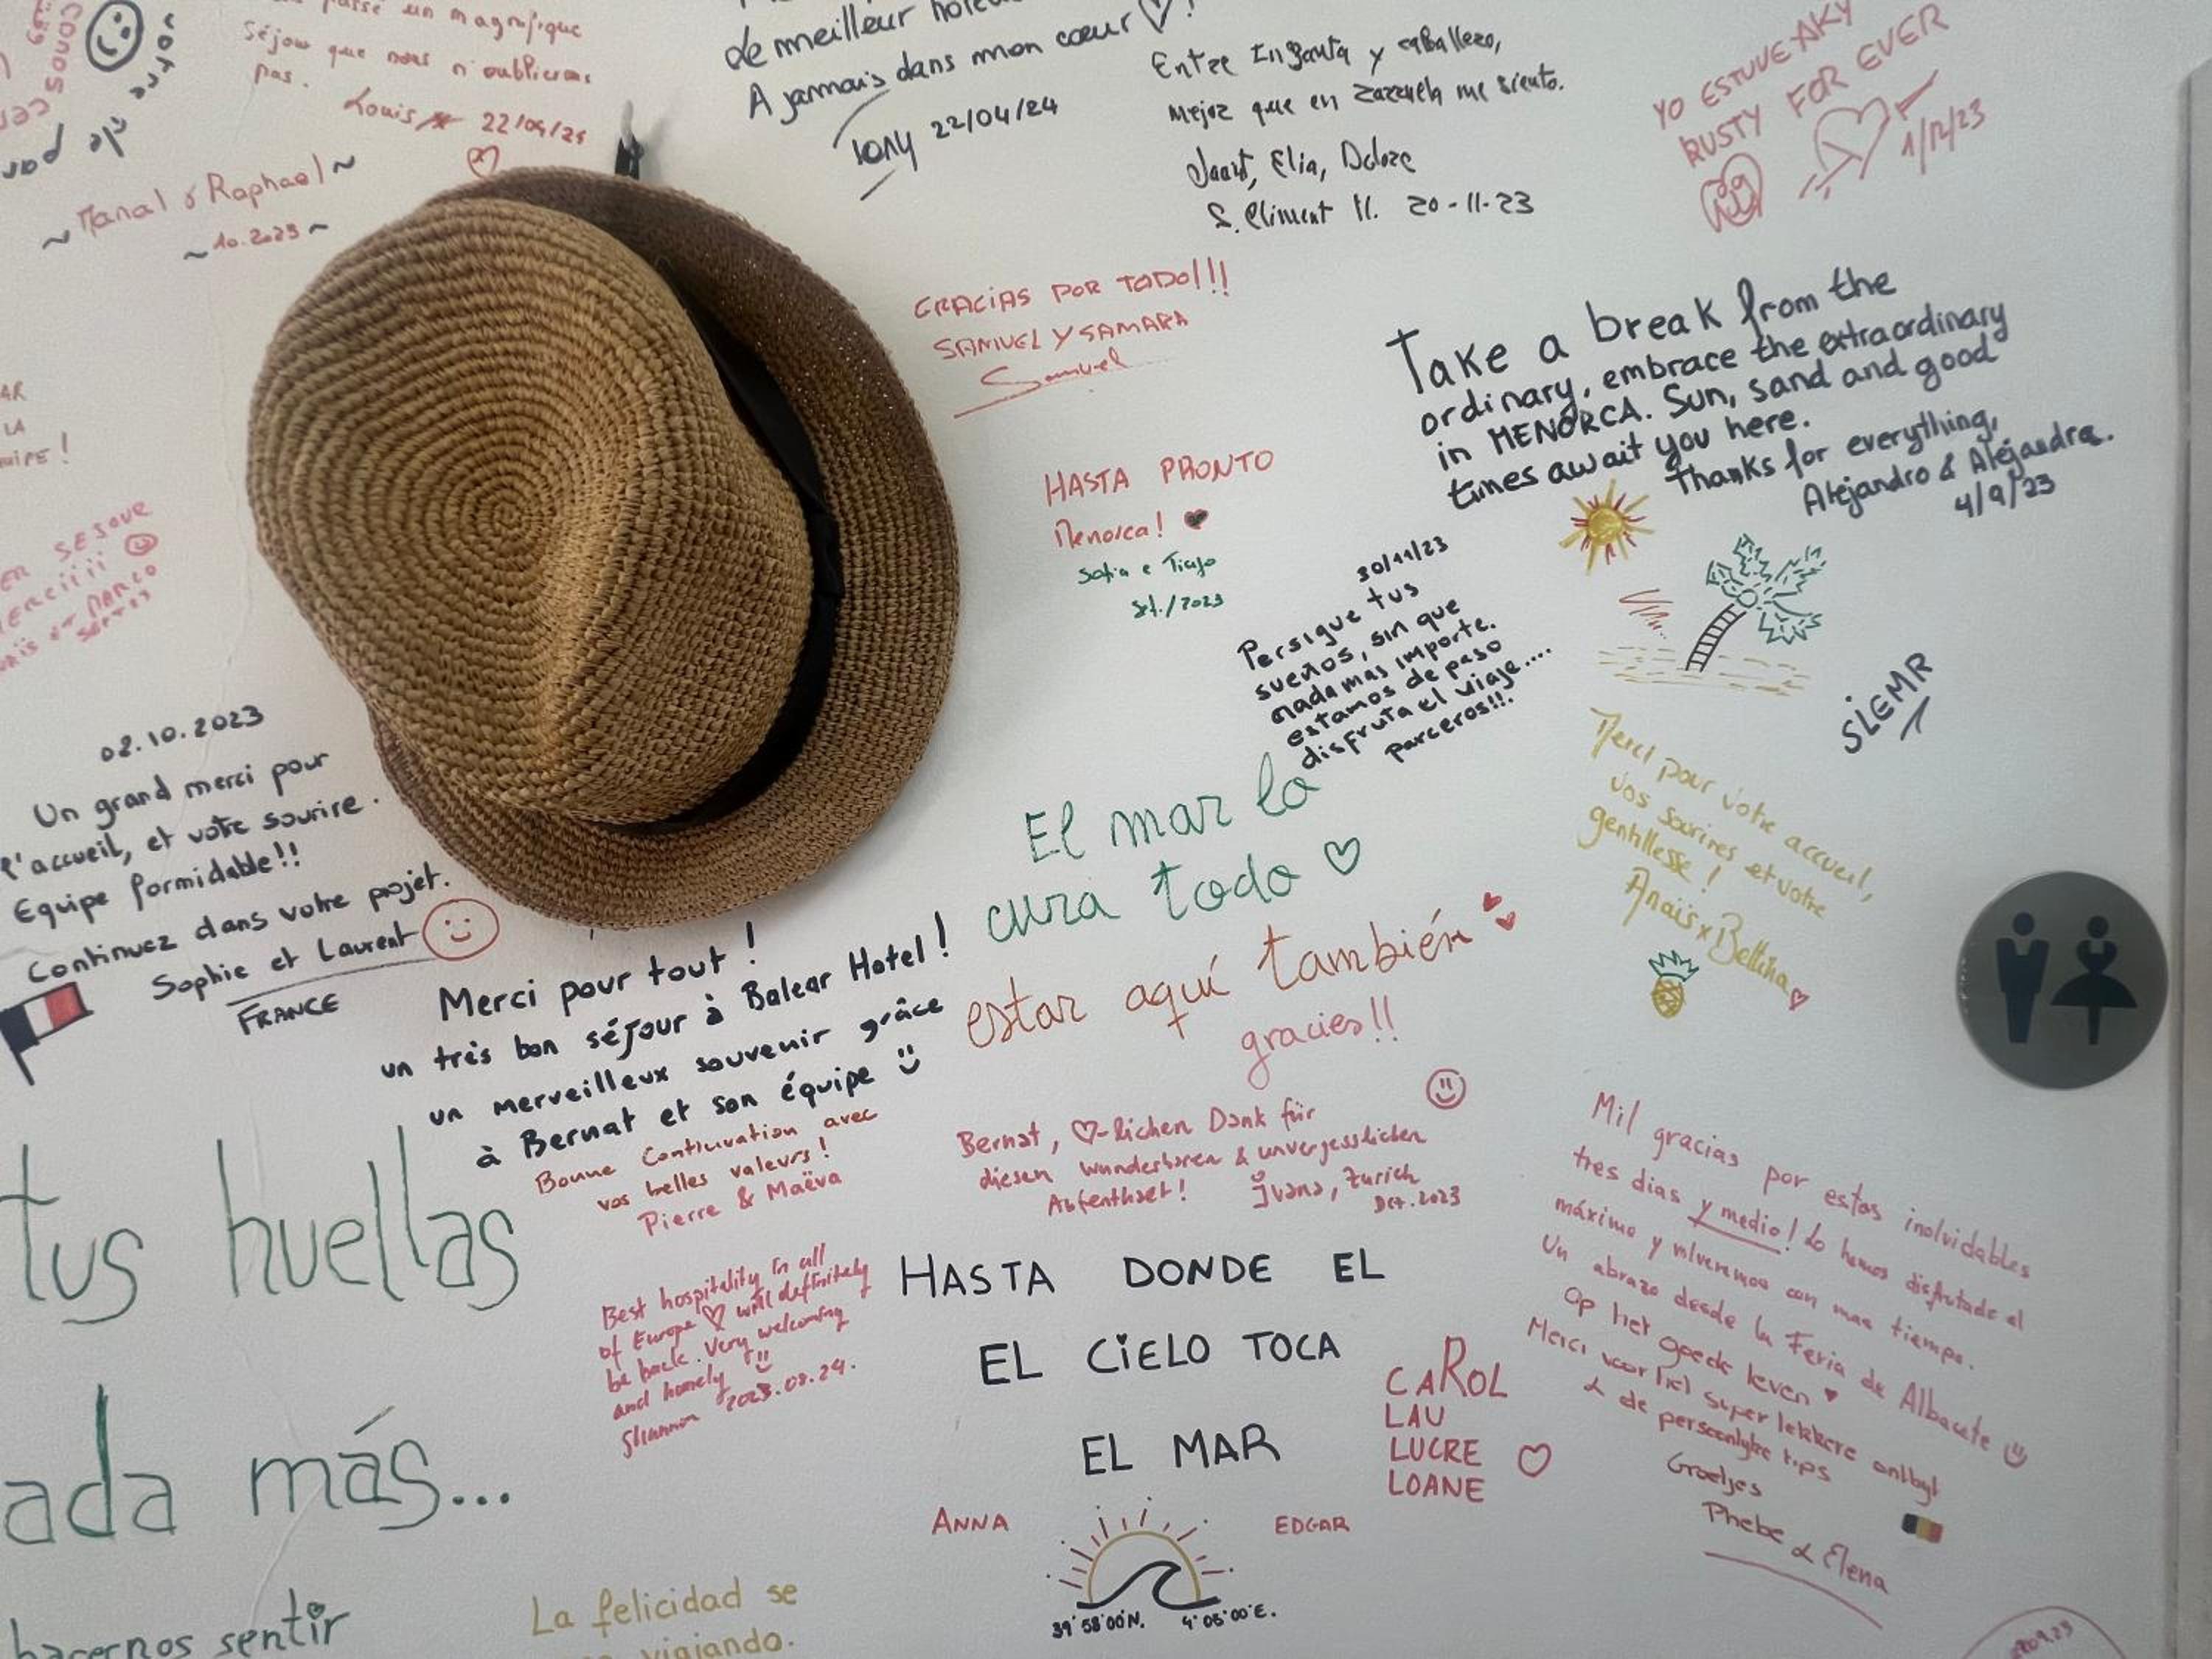 un magnifique
séjour que nous n'oublierons
pas.
Louis 22/04/24
de meilleur
A jamais dans mon cœur ♡!
Tony 22/04/24
Entre Infanta y caballero,
mejor que en zarzuela me siento.
Joart, Elia, Dolors
S. Climent M. 20-11-23
YO ESTUVE AKY
RUSTY FOR EVER
1/12/23
~ Manal & Raphael ~
~ 10.2023 ~
GRACIAS POR TODO!!!
SAMUEL Y SAMARA
Samuel
Take a break from the
ordinary, embrace the extraordinary
in MENORCA. Sun, sand and good
times await you here.
Thanks for everything,
Alejandro & Alejandra.
4/9/23
HASTA PRONTO
Menorca! ♥
Sofia e Tiago
Set./2023
30/11/23
Persigue tus
sueños, sin que
nada mas importe.
estamos de paso
disfruta el viaje....
parceros!!!
SLEMR
02.10.2023
Un grand merci pour
l'accueil, et votre sourire.
Equipe formidable!!
Continuez dans votre projet.
Sophie et Laurent
FRANCE
Merci pour votre accueil,
vos sourires et votre
gentillesse !
Anaïs x Bettina
El mar lo
cura todo ♡
estar aquí también
gracies!!
Merci pour tout !
un très bon séjour à Balear Hotel !
un merveilleux souvenir grâce
à Bernat et son équipe
Bonne Continuation avec
vos belles valeurs!
Pierre & Maëva
Bernat, ♡-lichen Dank für
diesen wunderbaren & unvergesslichen
Aufenthalt! Ivana, Zurich
Oct. 2023
Mil gracias por estos inolvidables
tres dias y medio! Lo hemos disfrutado al
máximo y volveremos con mas tiempo.
Un abrazo desde la Feria de Albacete
Op het goede leven ♥
Merci voor het super lekkere ontbijt
& de persoonlijke tips
Groetjes
Phebe & Elena
tus huellas
ada más...
hacernos sentir
Best hospitality in all
of Europe ♡ will definitely
be back. Very welcoming
and homely
Shannon 2023.09.24.
HASTA DONDE EL
EL CiELO TOCA
EL MAR
ANNA EDGAR
39°58'00"N. 4°05'00"E.
CAROL
LAU
LUCRE
LOANE
La felicidad se
viajando.